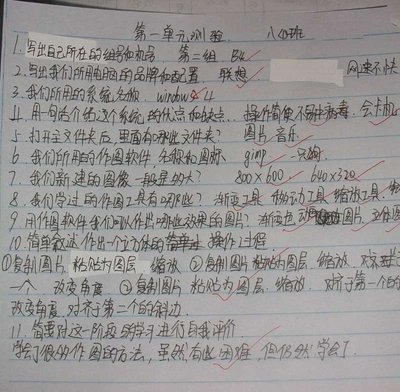 第一单元测验 八(4)班
1.写出自己所在的组号和机号 第二组 B4
2.写出我们所用电脑的品牌和配置 联想 网速不快
3.我们所用的系统名称. windows
4.用一句话介绍这个系统的优点和缺点. 操作简便不易中病毒. 会卡机
5.打开主文件夹后里面有哪些文件夹? 图片 音乐
6.我们所用的作图软件 名称和图标 gimp 一只狗
7.我们新建的图像一般是多大? 800×600 640×320
8.我们学过的作图工具有哪些? 渐变工具 移动工具 缩放工具
9.用作图软件我们可以作出哪些效果的图片? 渐变色 图片
10.简单叙述作出一个立方体的 操作过程
①复制图片 粘贴为图层 缩放 ②复制图片 粘贴为图层. 缩放.
一个 改变角度 ③复制图片 粘贴为图层. 缩放. 对齐第一个的
改变角度. 对齐第二个的斜边.
11.简要对这一阶段的学习进行自我评价
学会了很多作图的方法, 虽然有些困难, 但仍然学会了.